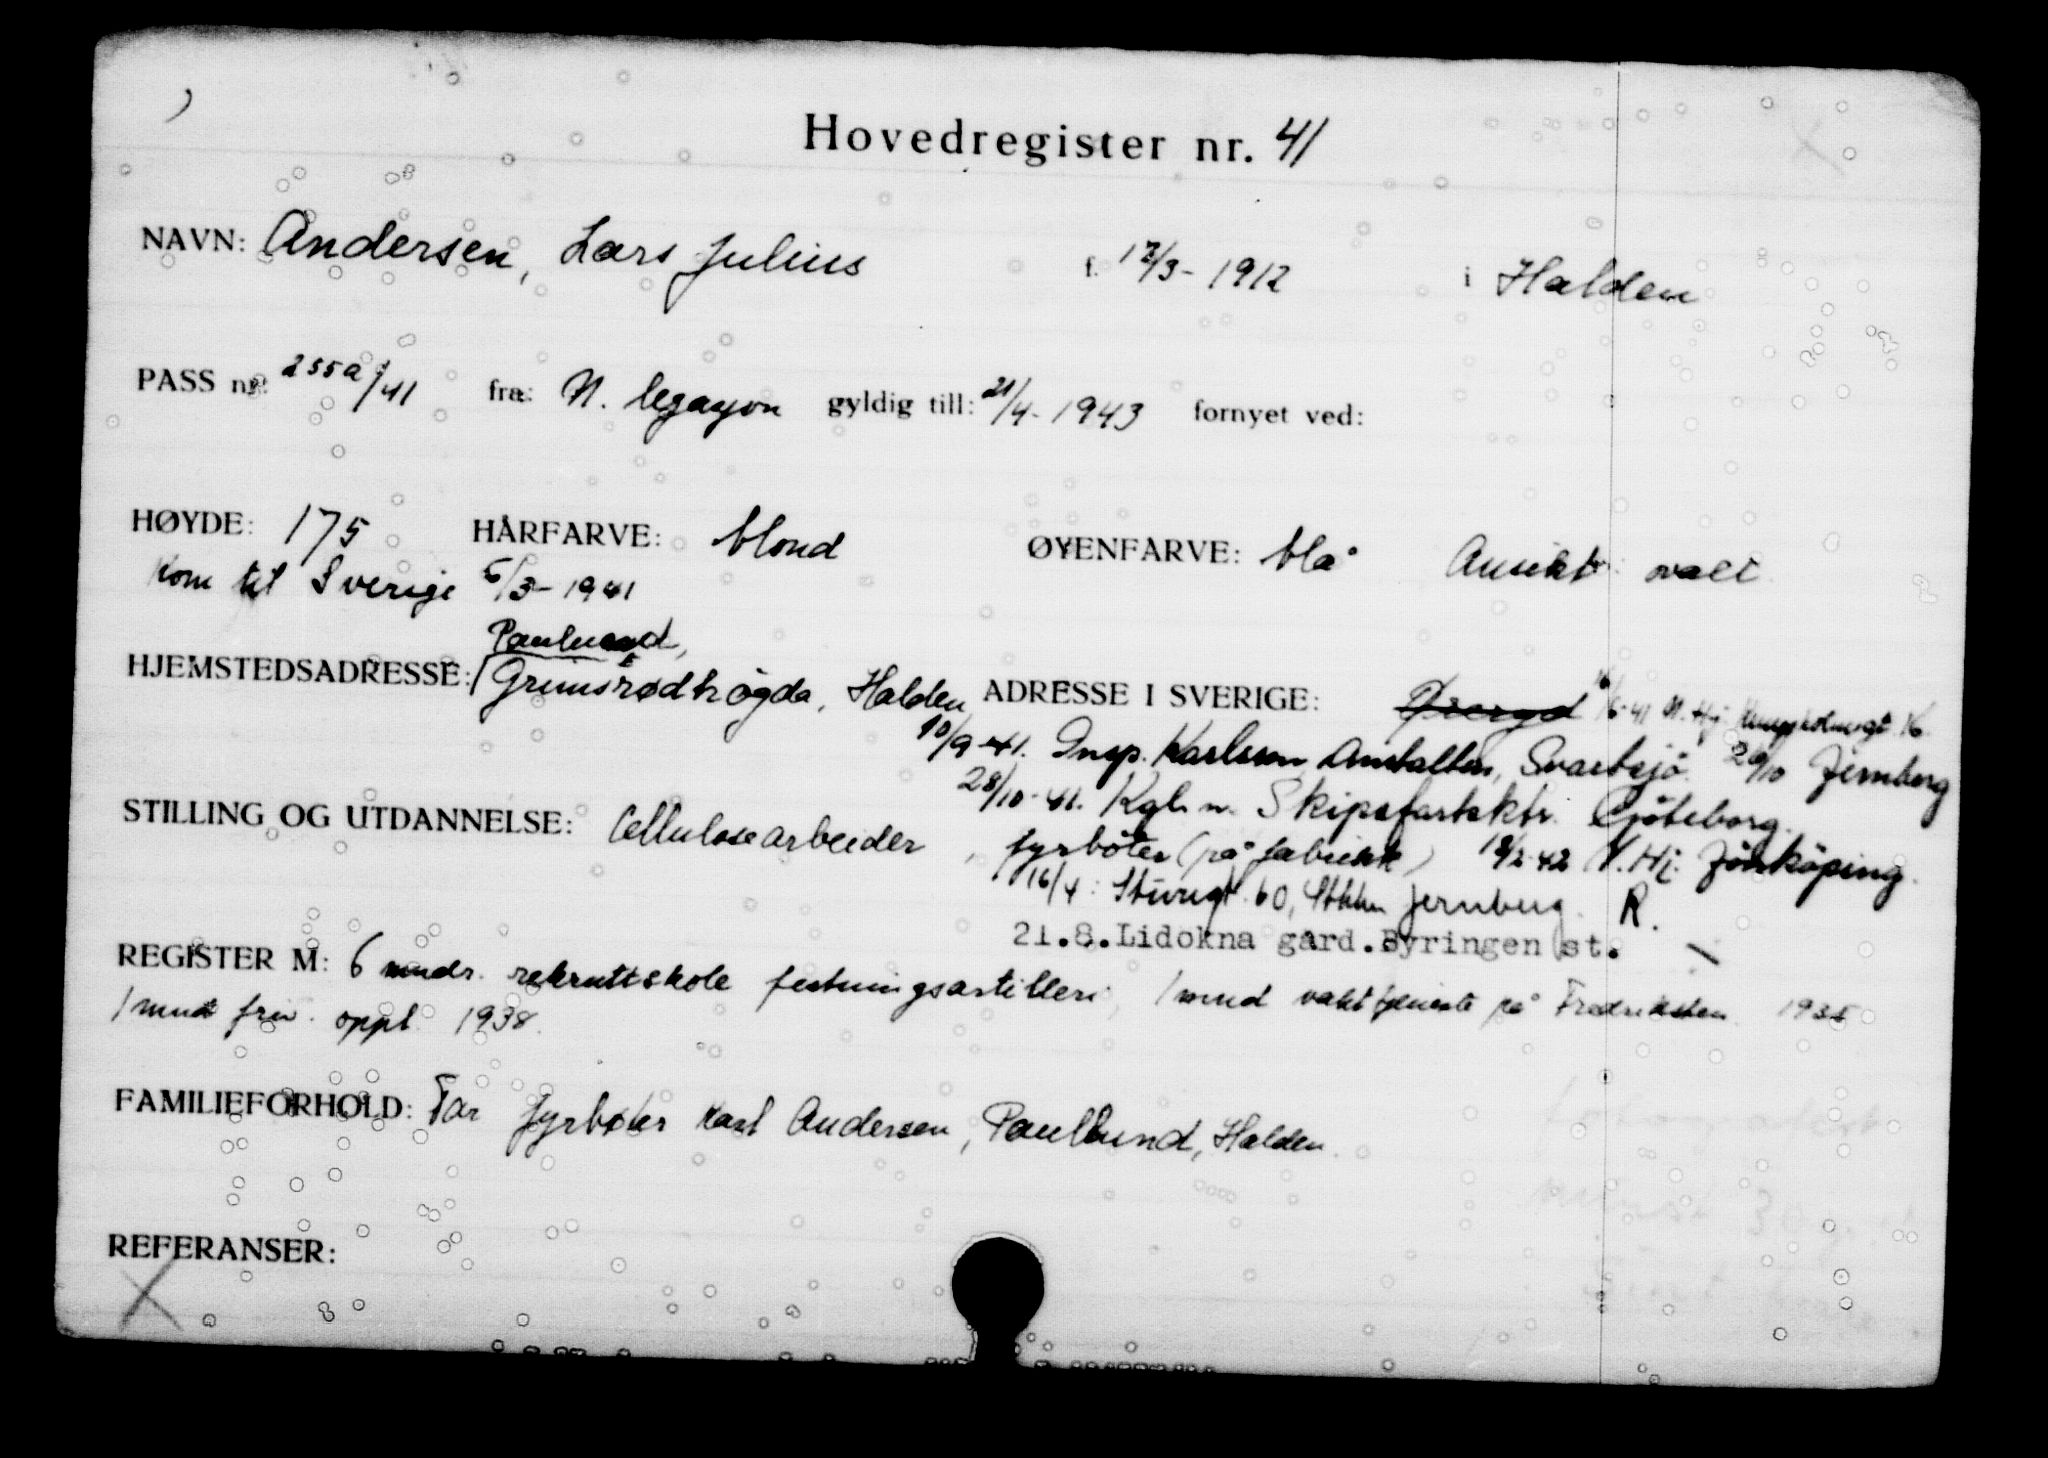 Hovedregister nr. 41
NAVN: Andersen, Lars Julius f. 12/3- 1912 i Halden
PASS nr. 255a/41 fra: N. legasjon gyldig till: 21/4- 1943 fornyet ved:
HØYDE: 175 HÅRFARVE: blond ØYENFARVE: blå Ansikt: ovalt
Kom til Sverige 5/3- 1941
Paulsund,
HJEMSTEDSADRESSE: Grimsrødhøgda, Halden ADRESSE I SVERIGE: Öreryd 16/6-41 N. Hj. 16
10/9-41. Insp. Karlsson, Anstalten, Svartsjö. 20/10 Jernberg
28/10-41. Kgl. n. Skipsfartsktr. Göteborg.
STILLING OG UTDANNELSE: Cellulosearbeider, fyrbøter (på fabrikk) 18/2-42 N. Hj. Jönköping.
16/4: Sturegt. 60, Sthlm Jernberg. R.
21.8.Lidokna gård.Byringen st.
REGISTER M: 6 mndr. rekruttskole festningsartilleri, 1 mnd vakttjeneste på Fredriksten 1935
1 mnd friv. oppl. 1938.
FAMILIEFORHOLD: Far fyrbøter Karl Andersen, Paulsund, Halden.
REFERANSER: